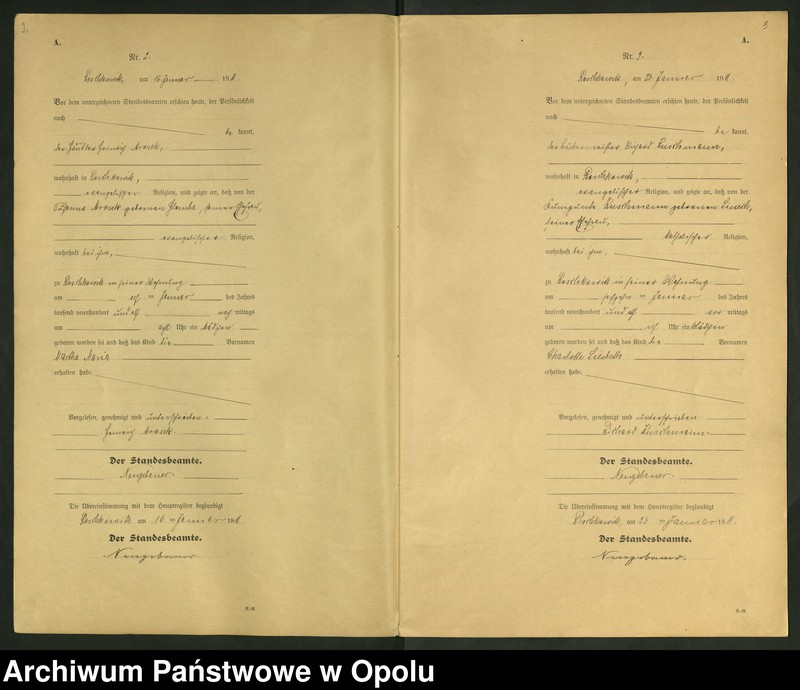 2.
A.
Nr. 2.
am 16. Januar 1911.
Vor dem unterzeichneten Standesbeamten erschien heute, der Persönlichkeit
nach
be kannt,
der Häusler Heinrich
wohnhaft in
evangelischer Religion, und zeigte an, daß von der
Susanna geborenen seiner Ehefrau,
evangelischer Religion,
wohnhaft bei ihm,
zu in seiner Wohnung
am elf ten Januar des Jahres
tausend neunhundert und elf nach mittags
um acht Uhr ein Mädchen
geboren worden sei und daß das Kind die Vornamen
Martha Maria
erhalten habe.
Vorgelesen, genehmigt und unterschrieben.
Heinrich
Der Standesbeamte.
Neugebauer.
Die Übereinstimmung mit dem Hauptregister beglaubigt
am 16 ten Januar 1911.
Der Standesbeamte.
Neugebauer
3
A.
Nr. 3.
am 23. Januar 1911.
Vor dem unterzeichneten Standesbeamten erschien heute, der Persönlichkeit
nach
be kannt,
der Richard Tuschmann,
wohnhaft in
evangelischer Religion, und zeigte an, daß von der
Kunigunde Tuschmann geborenen
seiner Ehefrau,
katholischer Religion,
wohnhaft bei ihm,
zu in seiner Wohnung
am sechzehn ten Januar des Jahres
tausend neunhundert und elf vor mittags
um elf Uhr ein Mädchen
geboren worden sei und daß das Kind die Vornamen
Charlotte Liesbeth
erhalten habe.
Vorgelesen, genehmigt und unterschrieben
Richard Tuschmann.
Der Standesbeamte.
Neugebauer.
Die Übereinstimmung mit dem Hauptregister beglaubigt
am 23 ten Januar 1911.
Der Standesbeamte.
Neugebauer.
Archiwum Państwowe w Opolu